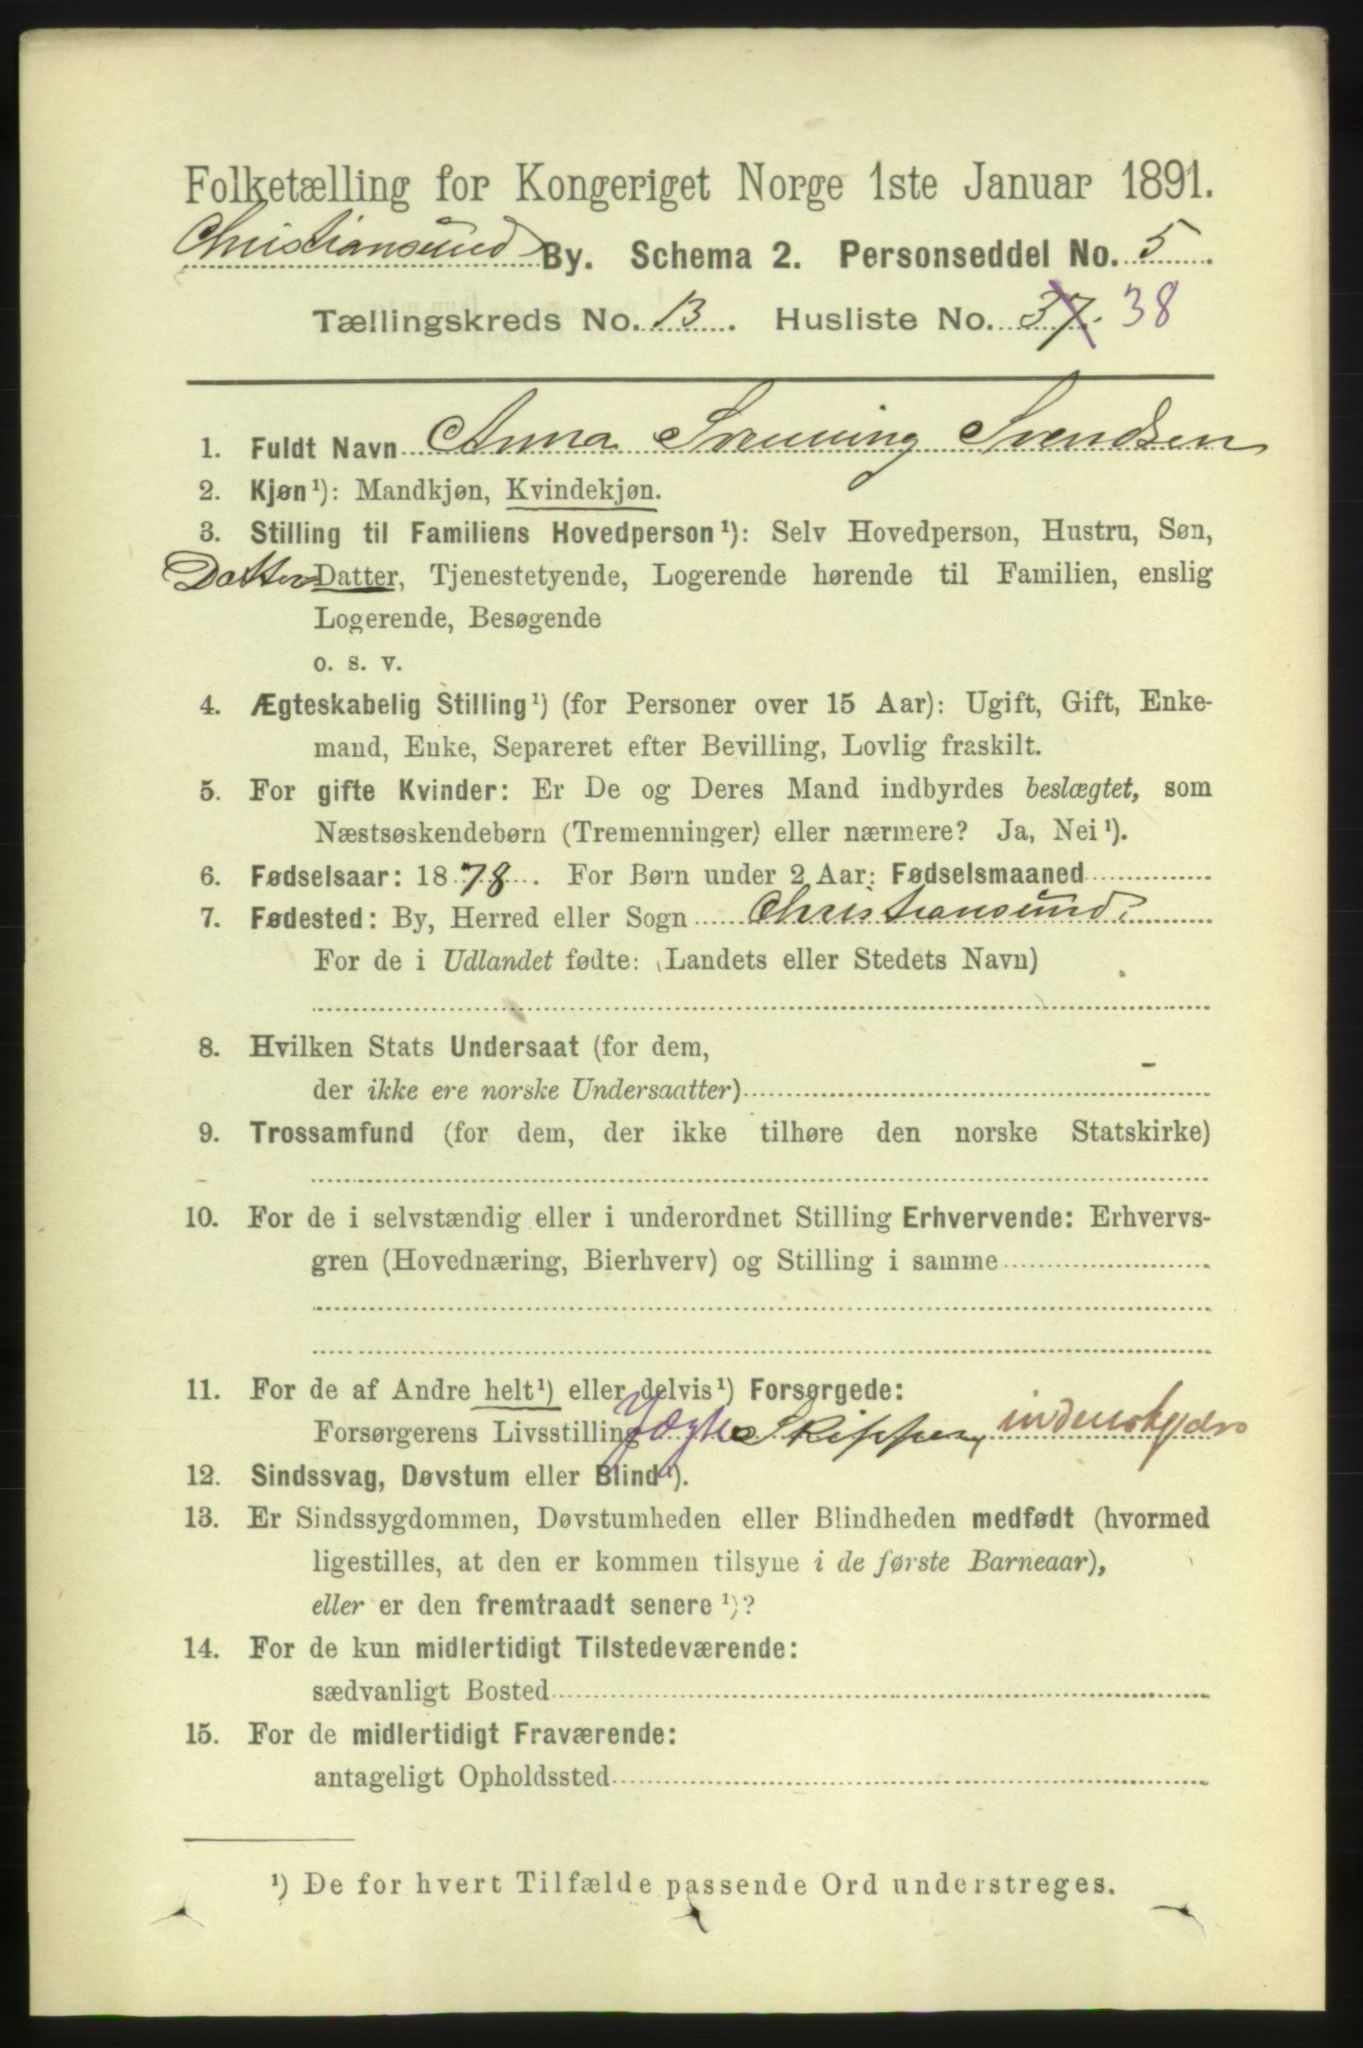 Folketælling for Kongeriget Norge 1ste Januar 1891.
Christiansund By. Schema 2. Personseddel No. 5
Tællingskreds No. 13. Husliste No. 37. 38
1. Fuldt Navn Anna Svenning Svendsen
2. Kjøn¹): Mandkjøn, Kvindekjøn.
3. Stilling til Familiens Hovedperson¹): Selv Hovedperson, Hustru, Søn,
Datter Datter, Tjenestetyende, Logerende hørende til Familien, enslig
Logerende, Besøgende
o. s. v.
4. Ægteskabelig Stilling¹) (for Personer over 15 Aar): Ugift, Gift, Enke-
mand, Enke, Separeret efter Bevilling, Lovlig fraskilt.
5. For gifte Kvinder: Er De og Deres Mand indbyrdes beslægtet, som
Næstsøskendebørn (Tremenninger) eller nærmere? Ja, Nei¹).
6. Fødselsaar: 1878. For Børn under 2 Aar: Fødselsmaaned
7. Fødested: By, Herred eller Sogn Christiansund.
For de i Udlandet fødte: (Landets eller Stedets Navn)
8. Hvilken Stats Undersaat (for dem,
der ikke ere norske Undersaatter)
9. Trossamfund (for dem, der ikke tilhøre den norske Statskirke)
10. For de i selvstændig eller i underordnet Stilling Erhvervende: Erhvervs-
gren (Hovednæring, Bierhverv) og Stilling i samme
11. For de af Andre helt¹) eller delvis¹) Forsørgede:
Forsørgerens Livsstilling Jægte Skipper, indenskjærs
12. Sindssvag, Døvstum eller Blind¹).
13. Er Sindssygdommen, Døvstumheden eller Blindheden medfødt (hvormed
ligestilles, at den er kommen tilsyne i de første Barneaar),
eller er den fremtraadt senere¹)?
14. For de kun midlertidigt Tilstedeværende:
sædvanligt Bosted
15. For de midlertidigt Fraværende:
antageligt Opholdssted
¹) De for hvert Tilfælde passende Ord understreges.